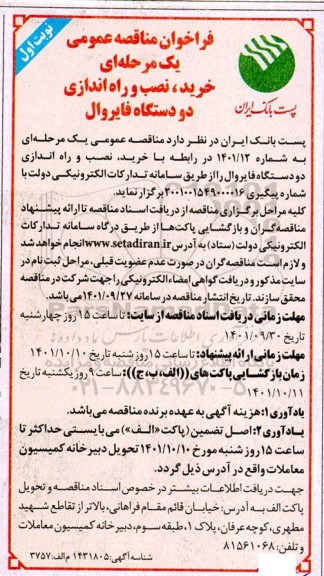 نوبت اول
فراخوان مناقصه عمومی
یک مرحله‌ای
خرید، نصب و راه اندازی
دو دستگاه فایروال
پست بانک ایران
پست بانک ایران در نظر دارد مناقصه عمومی یک مرحله‌ای
به شماره ۱۴۰۱/۱۲ در رابطه با خرید، نصب و راه اندازی
دو دستگاه فایروال را از طریق سامانه تدارکات الکترونیکی دولت با
شماره پیگیری ۲۰۰۱۰۰۱۵۴۹۰۰۰۰۱۶ برگزار نماید.
کلیه مراحل برگزاری مناقصه از دریافت اسناد مناقصه تا ارائه پیشنهاد
مناقصه گران و بازگشایی پاکت‌ها از طریق درگاه سامانه تدارکات
الکترونیکی دولت (ستاد) به آدرس www.setadiran.ir انجام خواهد شد
و لازم است مناقصه گران در صورت عدم عضویت قبلی، مراحل ثبت نام در
سایت مذکور و دریافت گواهی امضاء الکترونیکی را جهت شرکت در مناقصه
محقق سازند. تاریخ انتشار مناقصه در سامانه ۱۴۰۱/۰۹/۲۷ می‌باشد.
مهلت زمانی دریافت اسناد مناقصه از سایت: تا ساعت ۱۵ روز چهارشنبه
تاریخ ۱۴۰۱/۰۹/۳۰
مهلت زمانی ارائه پیشنهاد: تا ساعت ۱۵ روز شنبه تاریخ ۱۴۰۱/۱۰/۱۰
زمان بازگشایی پاکت‌های ((الف، ب، ج)): ساعت ۹ روز یکشنبه تاریخ
۱۴۰۱/۱۰/۱۱
یادآوری ۱: هزینه آگهی به عهده برنده مناقصه می‌باشد.
یادآوری ۲: اصل تضمین (پاکت «الف») می‌بایستی حداکثر تا
ساعت ۱۵ روز شنبه مورخ ۱۴۰۱/۱۰/۱۰ تحویل دبیرخانه کمیسیون
معاملات واقع در آدرس ذیل گردد.
جهت دریافت اطلاعات بیشتر در خصوص اسناد مناقصه و تحویل
پاکت الف به آدرس: خیابان قائم مقام فراهانی، بالاتر از تقاطع شهید
مطهری، کوچه عرفان، پلاک ۱، طبقه سوم، دبیرخانه کمیسیون معاملات
و تلفن: ۸۱۵۶۱۰۶۸
شناسه آگهی: ۱۴۳۱۸۰۵ م الف: ۳۷۵۷